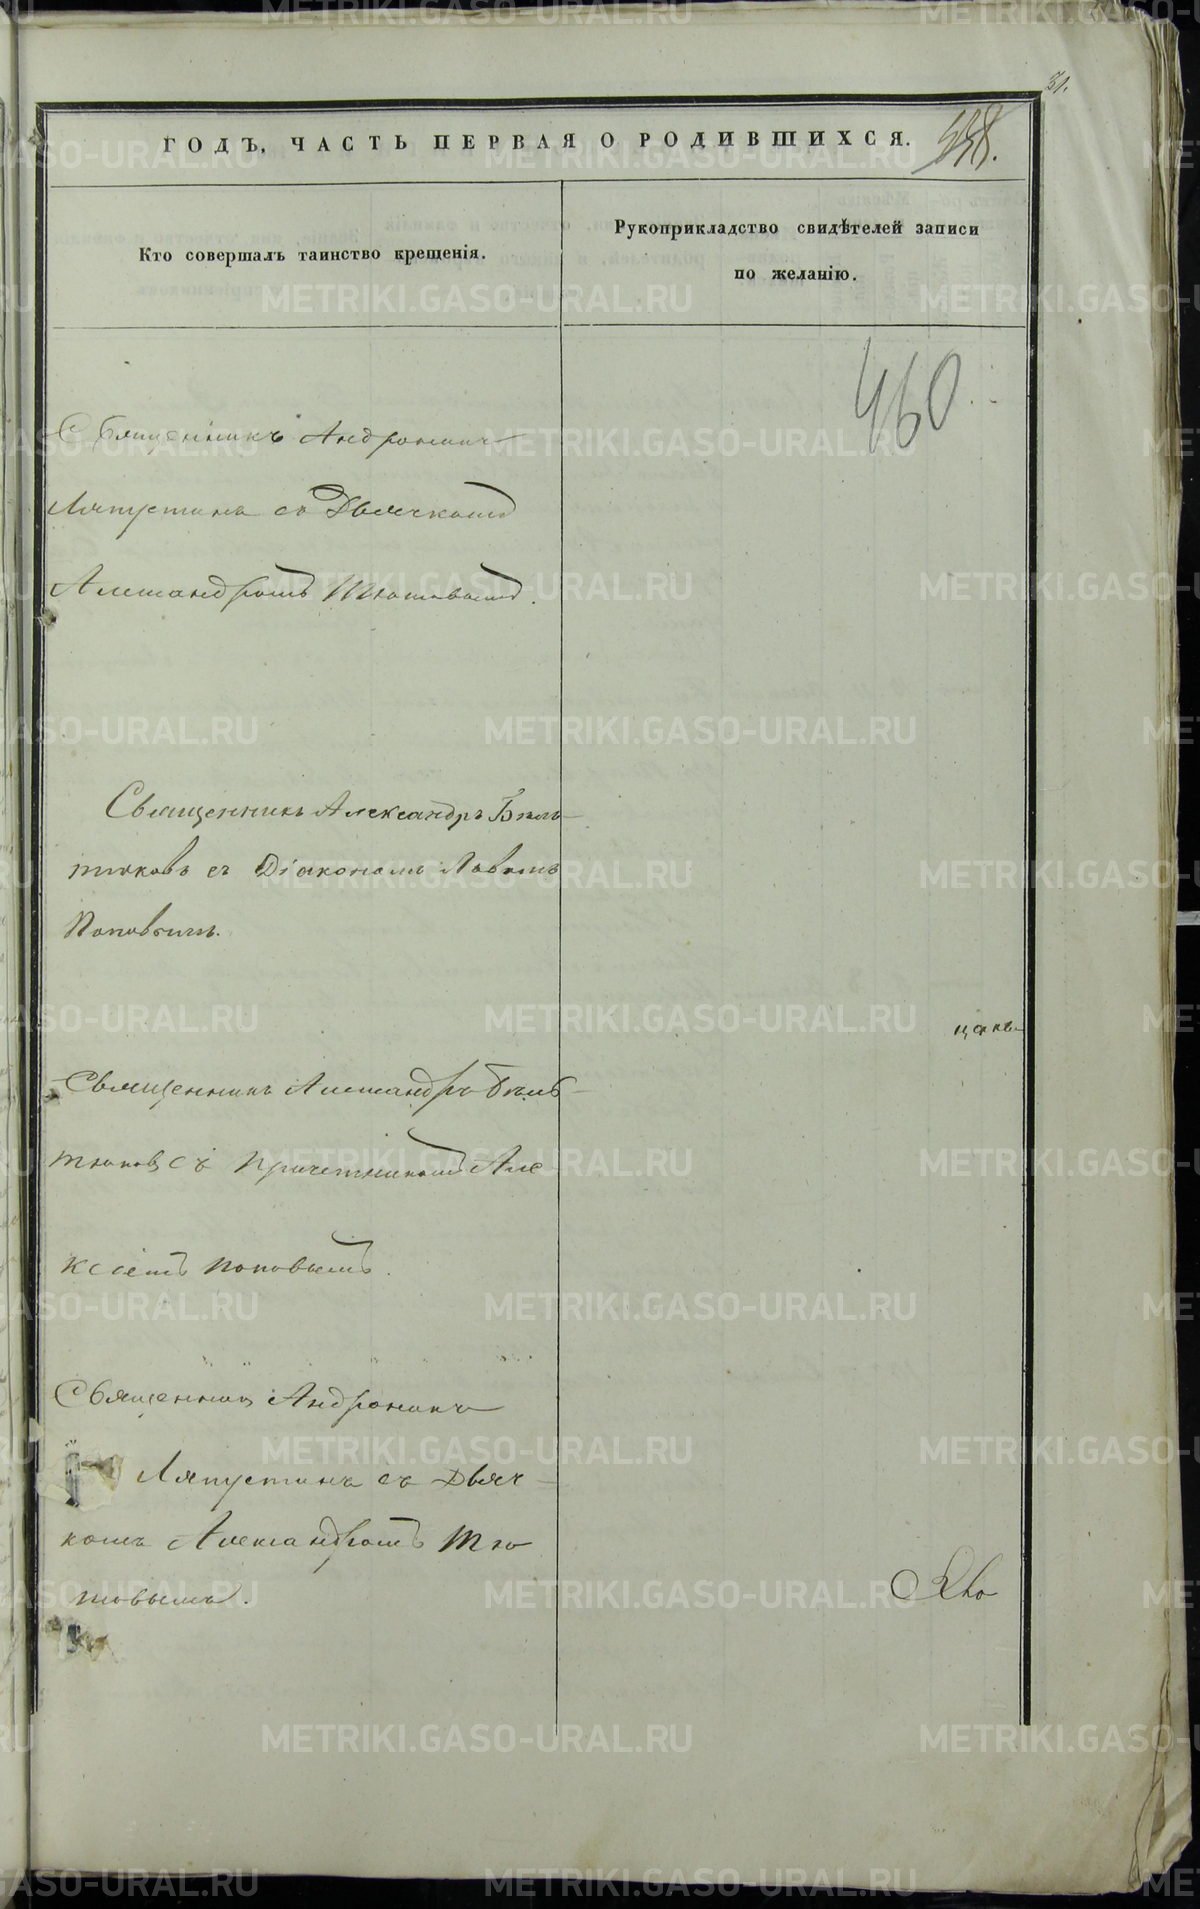 31.
ГОДЪ, ЧАСТЬ ПЕРВАЯ О РОДИВШИХСЯ.
Кто совершалъ таинство крещенія.
Рукоприкладство свидѣтелей записи
по желанію.
460
Священникъ Андроникъ
Ляпустинъ съ Дьячкомъ
Александромъ Тютовымъ.
Священникъ Александръ Бѣль-
тюковъ съ Діакономъ Львомъ
Поповымъ.
Священникъ Александръ Бѣль-
тюковъ съ Причетникомъ Але
ксіемъ Поповымъ.
Священникъ Андроникъ
Ляпустинъ съ Дьяч-
комъ Александромъ Тю
товымъ.
METRIKI.GASO-URAL.RU